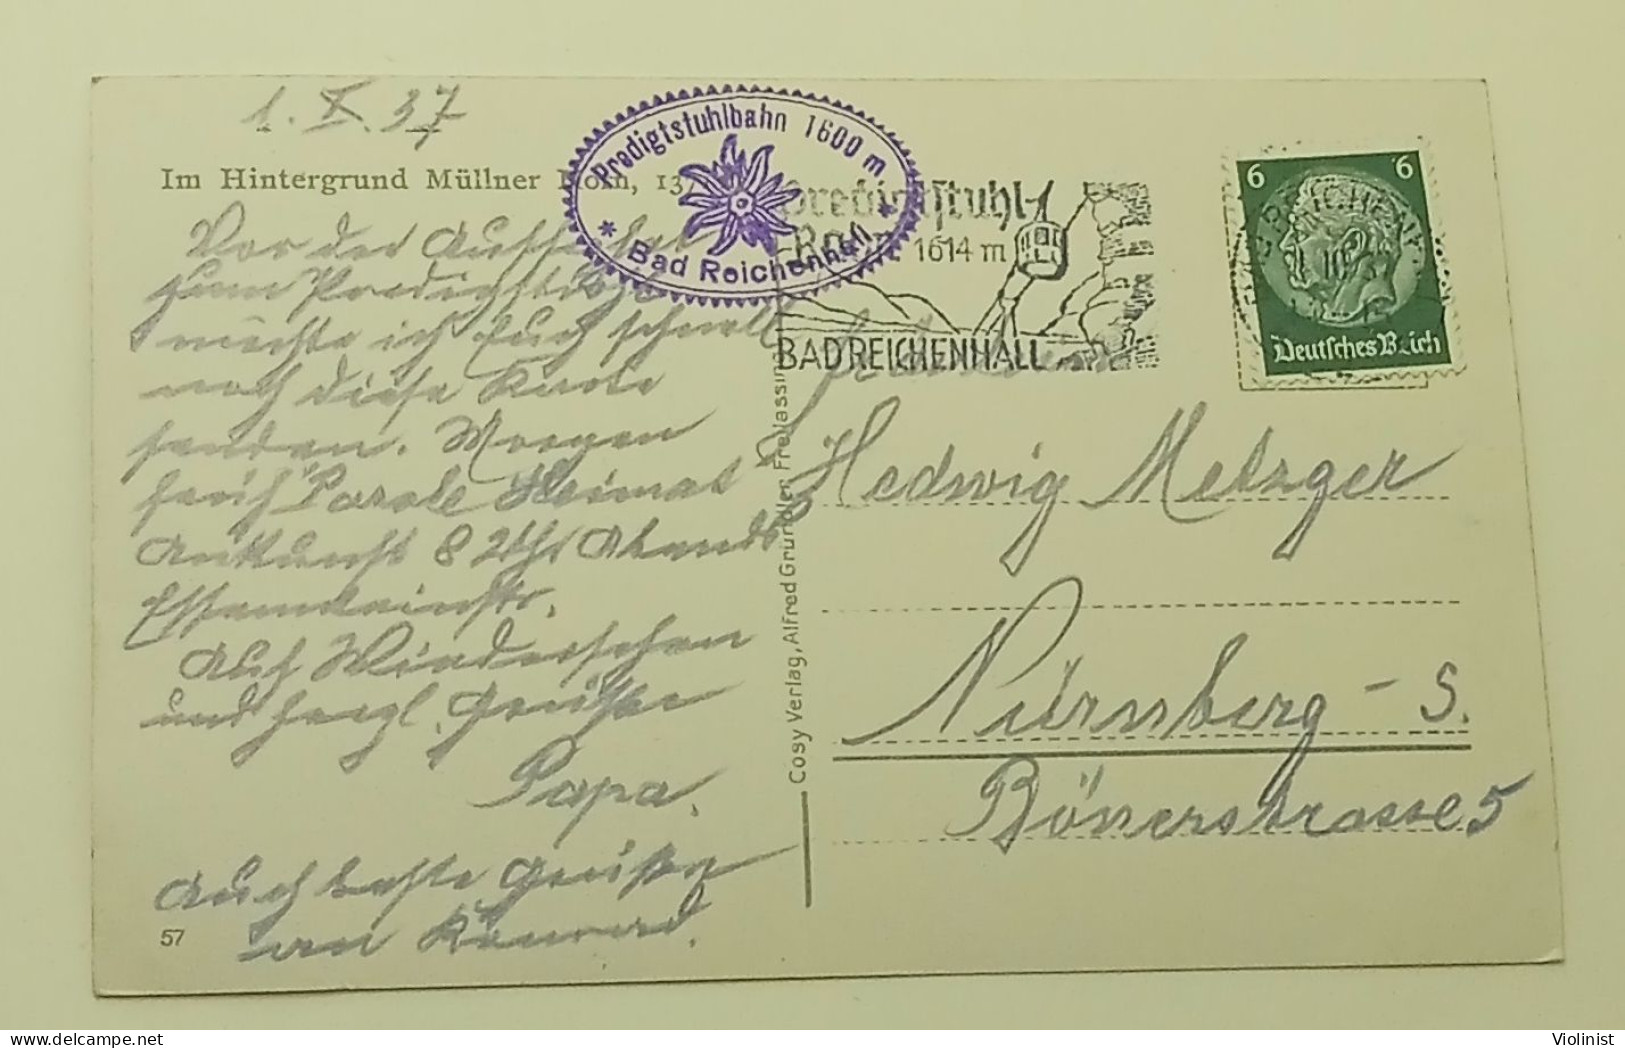 1. X. 37
Im Hintergrund Müllner Horn, 137
Predigtstuhlbahn 1600 m
* Bad Reichenhall *
Predigtstuhl-
Bahn 1614 m
BAD REICHENHALL
6 6
Deutsches Reich
Vor der Auffahrt
zum Predigtstuhl
möchte ich Euch schnell
noch diese Karte
senden. Morgen
früh Parole Heimat
Ankunft 8 Uhr Abends
Auf Wiedersehen
und herzl. Grüße
Papa.
Auch beste Grüße
an Konrad.
57
Cosy Verlag, Alfred Gründler, Freilassing
Fräulein
Hedwig Metzger
Nürnberg - S.
Bönerstrasse 5
Violinist